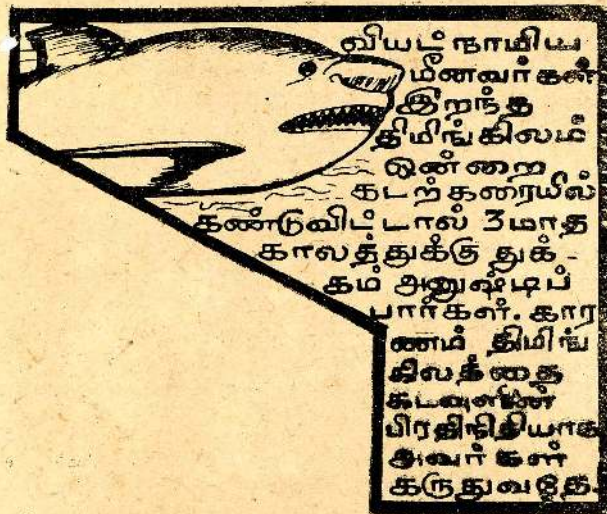 வியட்நாமிய
மீனவர்கள்
இறந்த
திமிங்கிலம்
ஒன்றை
கடற்கரையில்
கண்டுவிட்டால் 3 மாத
காலத்துக்கு துக்-
கம் அனுஷ்டிப்
பார்கள். கார
ணம் திமிங்
கிலத்தை
கடவுளின்
பிரதிநிதியாக
அவர்கள்
கருதுவதே.